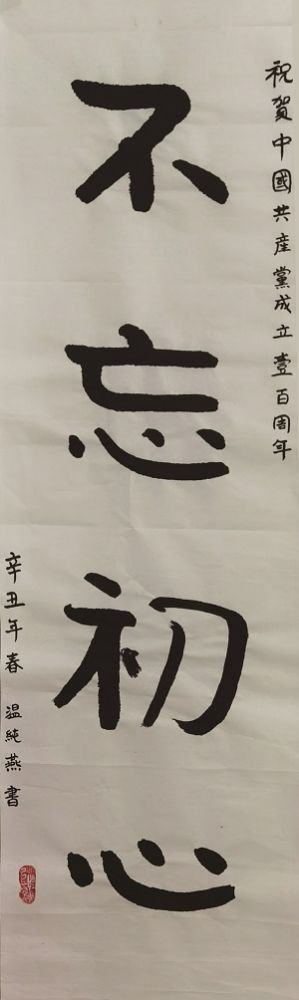 祝賀中國共産黨成立壹百周年
不忘初心
辛丑年春 温純燕書